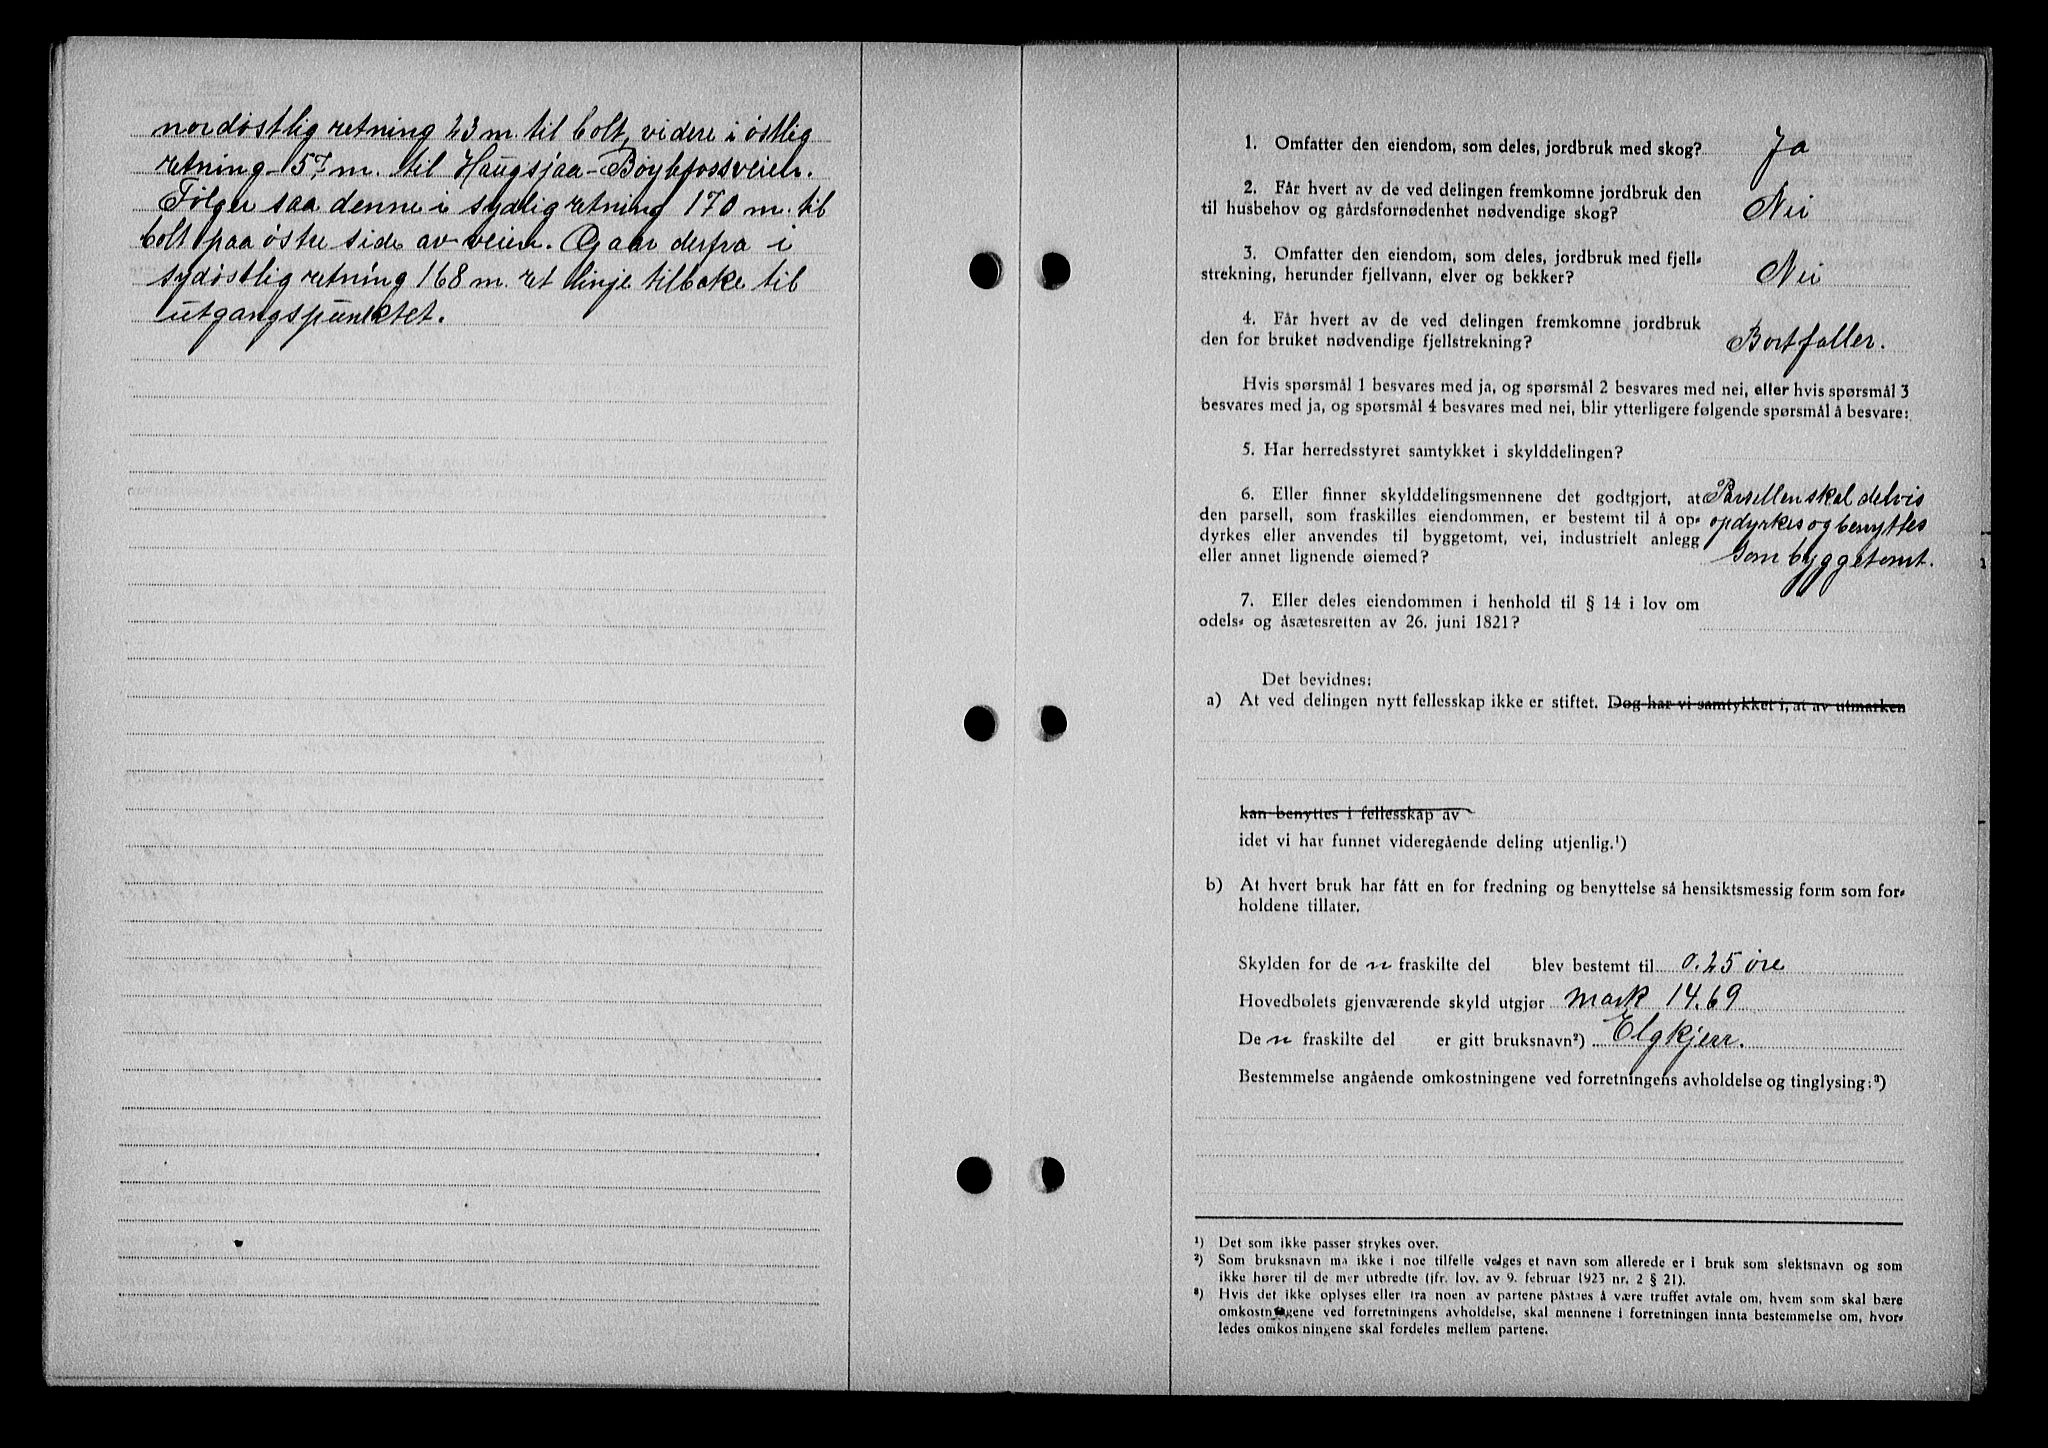 nordøstlig retning 23 m. til bolt, videre i østlig
retning 57 m. til Haugsjaa-Bøylefossveien.
Følger saa denne i sydlig retning 170 m. til
bolt paa østre side av veien. Gaar derfra i
sydøstlig retning 168 m. ret linje tilbake til
utgangspunktet.
1. Omfatter den eiendom, som deles, jordbruk med skog? Ja
2. Får hvert av de ved delingen fremkomne jordbruk den
til husbehov og gårdsfornødenhet nødvendige skog? Nei
3. Omfatter den eiendom, som deles, jordbruk med fjell-
strekning, herunder fjellvann, elver og bekker? Nei
4. Får hvert av de ved delingen fremkomne jordbruk
den for bruket nødvendige fjellstrekning? Bortfaller.
Hvis spørsmål 1 besvares med ja, og spørsmål 2 besvares med nei, eller hvis spørsmål 3
besvares med ja, og spørsmål 4 besvares med nei, blir ytterligere følgende spørsmål å besvare:
5. Har herredsstyret samtykket i skylddelingen?
6. Eller finner skylddelingsmennene det godtgjort, at Parsellen skal delvis
den parsell, som fraskilles eiendommen, er bestemt til å op- opdyrkes og benyttes
dyrkes eller anvendes til byggetomt, vei, industrielt anlegg
eller annet lignende øiemed? som byggetomt.
7. Eller deles eiendommen i henhold til § 14 i lov om
odels- og åsætesretten av 26. juni 1821?
Det bevidnes:
a) At ved delingen nytt fellesskap ikke er stiftet. Dog har vi samtykket i, at av utmarken
kan benyttes i fellesskap av
idet vi har funnet videregående deling utjenlig.¹)
b) At hvert bruk har fått en for fredning og benyttelse så hensiktsmessig form som for-
holdene tillater.
Skylden for de n fraskilte del blev bestemt til 0.25 øre
Hovedbølets gjenværende skyld utgjør mark 14.69
De n fraskilte del er gitt bruksnavn²) Elgkjerr.
Bestemmelse angående omkostningene ved forretningens avholdelse og tinglysing:³)
¹) Det som ikke passer strykes over.
²) Som bruksnavn må ikke i noe tilfelle velges et navn som allerede er i bruk som slektsnavn og som
ikke hører til de mer utbredte (jfr. lov. av 9. februar 1923 nr. 2 § 21).
³) Hvis det ikke oplyses eller fra noen av partene påstaes å være truffet avtale om, hvem som skal bære
omkostningene ved forretningens avholdelse, skal mennene i forretningen innta bestemmelse om, hvor-
ledes omkostningene skal fordeles mellem partene.